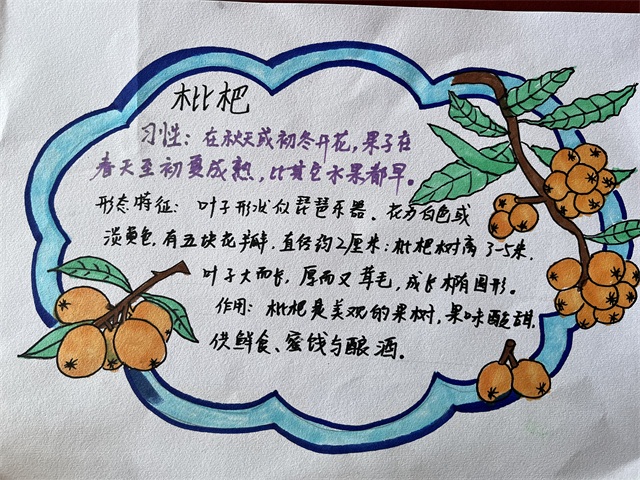 枇杷
习性：在秋天或初冬开花，果子在
春天至初夏成熟，比其它水果都早。
形态特征：叶子形状似琵琶乐器。花为白色或
淡黄色，有五块花瓣，直径约2厘米；枇杷树高3-5米，
叶子大而长，厚而又茸毛，成长椭圆形。
作用：枇杷是美观的果树，果味酸甜，
供鲜食、蜜饯与酿酒。